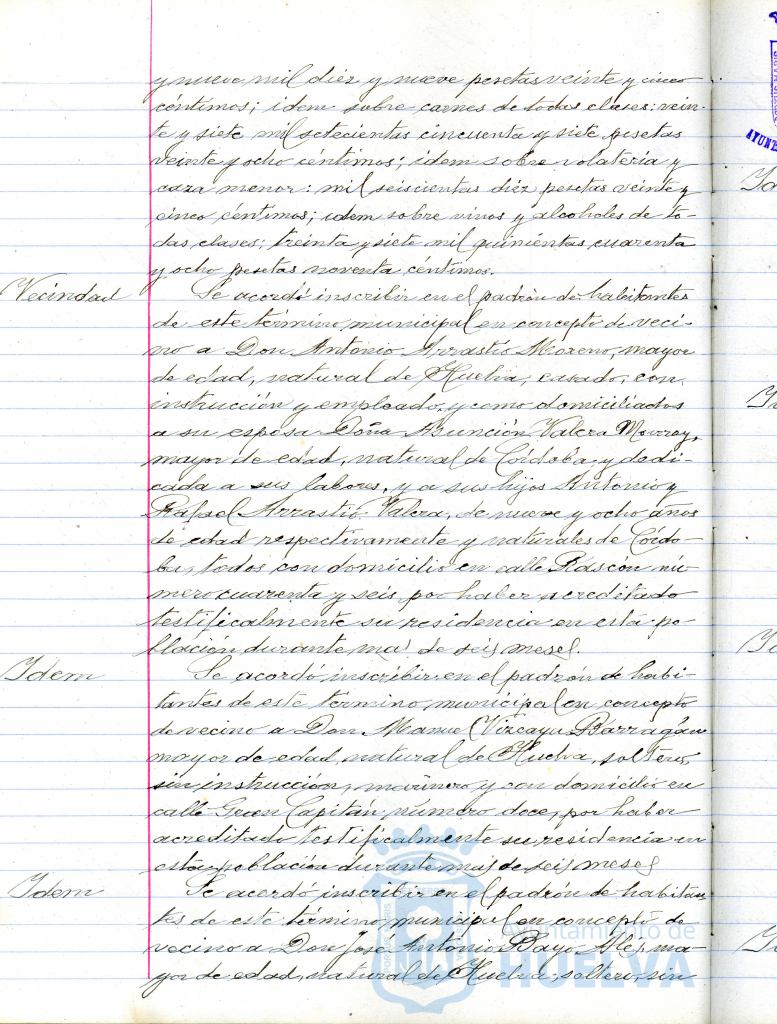 y nueve mil diez y nueve pesetas veinte y cinco
céntimos; idem sobre carnes de todas clases: vein-
te y siete mil setecientas cincuenta y siete pesetas
veinte y ocho céntimos; idem sobre volatería y
caza menor: mil seiscientas diez pesetas veinte y
cinco céntimos; idem sobre vinos y alcoholes de to-
das clases; treinta y siete mil quinientas cuarenta
y ocho pesetas noventa céntimos.
Vecindad
Se acordó inscribir en el padrón de habitantes
de este término municipal en concepto de veci-
no a Don Antonio Arrastio Moreno, mayor
de edad, natural de Huelva, casado, con
instrucción y empleado, y como domiciliados
a su esposa Doña Asunción Valera
mayor de edad, natural de Córdoba y dedi-
cada a sus labores, y a sus hijos Antonio y
Rafael Arrastio Valera, de nueve y ocho años
de edad respectivamente y naturales de Córdo-
ba, todos con domicilio en calle Rascón nú-
mero cuarenta y seis, por haber acreditado
testificalmente su residencia en esta po-
blación durante mas de seis meses.
Idem
Se acordó inscribir en el padrón de habi-
tantes de este termino municipal en concepto
de vecino a Don Manuel Vizcaya Barragán
mayor de edad, natural de Huelva, soltero,
sin instrucción, marinero y con domicilio en
calle Gran Capitán número doce, por haber
acreditado testificalmente su residencia en
esta población durante mas de seis meses
Idem
Se acordó inscribir en el padrón de habitan-
tes de este término municipal en concepto de
vecino a Don José Antonio Bayo, ma-
yor de edad, natural de Huelva, soltero, sin
Ayuntamiento de
HUELVA